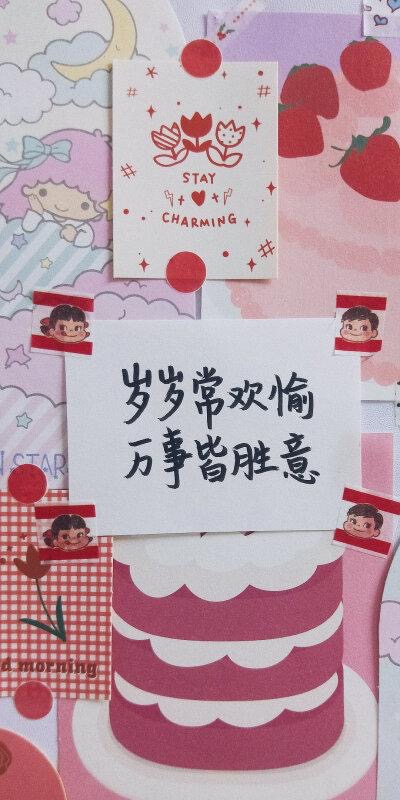 STAY
CHARMING
岁岁常欢愉
万事皆胜意
N STAR
d morning